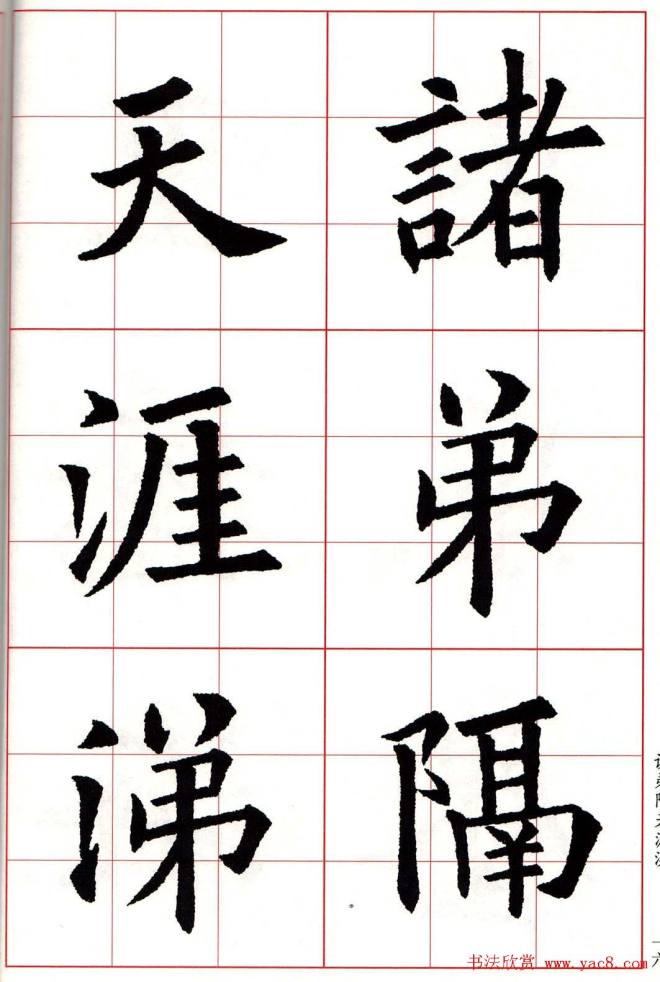 諸弟隔
天涯涕
一六
书法欣赏 www.yac8.com